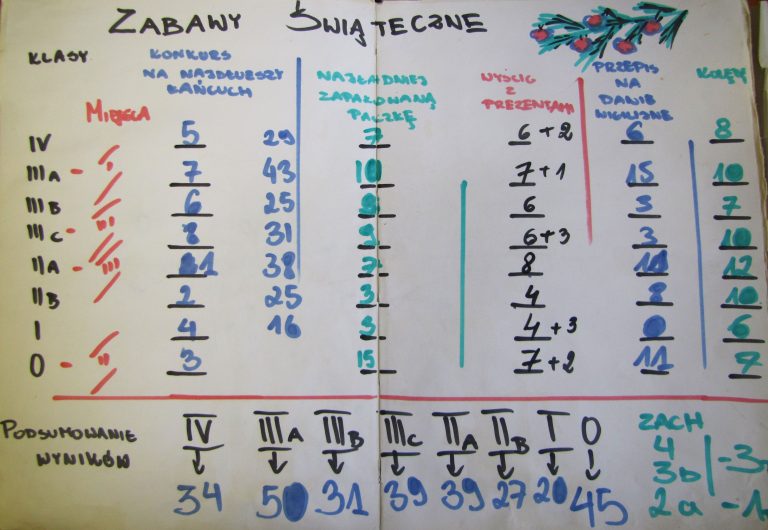 ZABAWY ŚWIĄTECZNE
KLASY
MIEJSCA
KONKURS
NA NAJDŁUŻSZY
ŁAŃCUCH
NAJŁADNIEJ
ZAPAKOWANĄ
PACZKĘ
WYŚCIG
Z
PREZENTAMI
PRZEPIS
NA
DANIE
WIGILIJNE
KOLĘDY
IV 5 29 7 6+2 6 8
III A - I 7 43 10 7+1 15 10
III B 6 25 6 3 7
III C - III 8 31 9 6+3 3 10
II A - III 38 7 8 12
II B 2 25 3 4 8 10
I 4 16 3 4+3 0 6
0 - II 3 15 7+2 11 7
PODSUMOWANIE
WYNIKÓW
IV III A III B III C II A II B I 0
34 50 31 39 39 27 20 45
ZACH
4
3b -3
2a -1